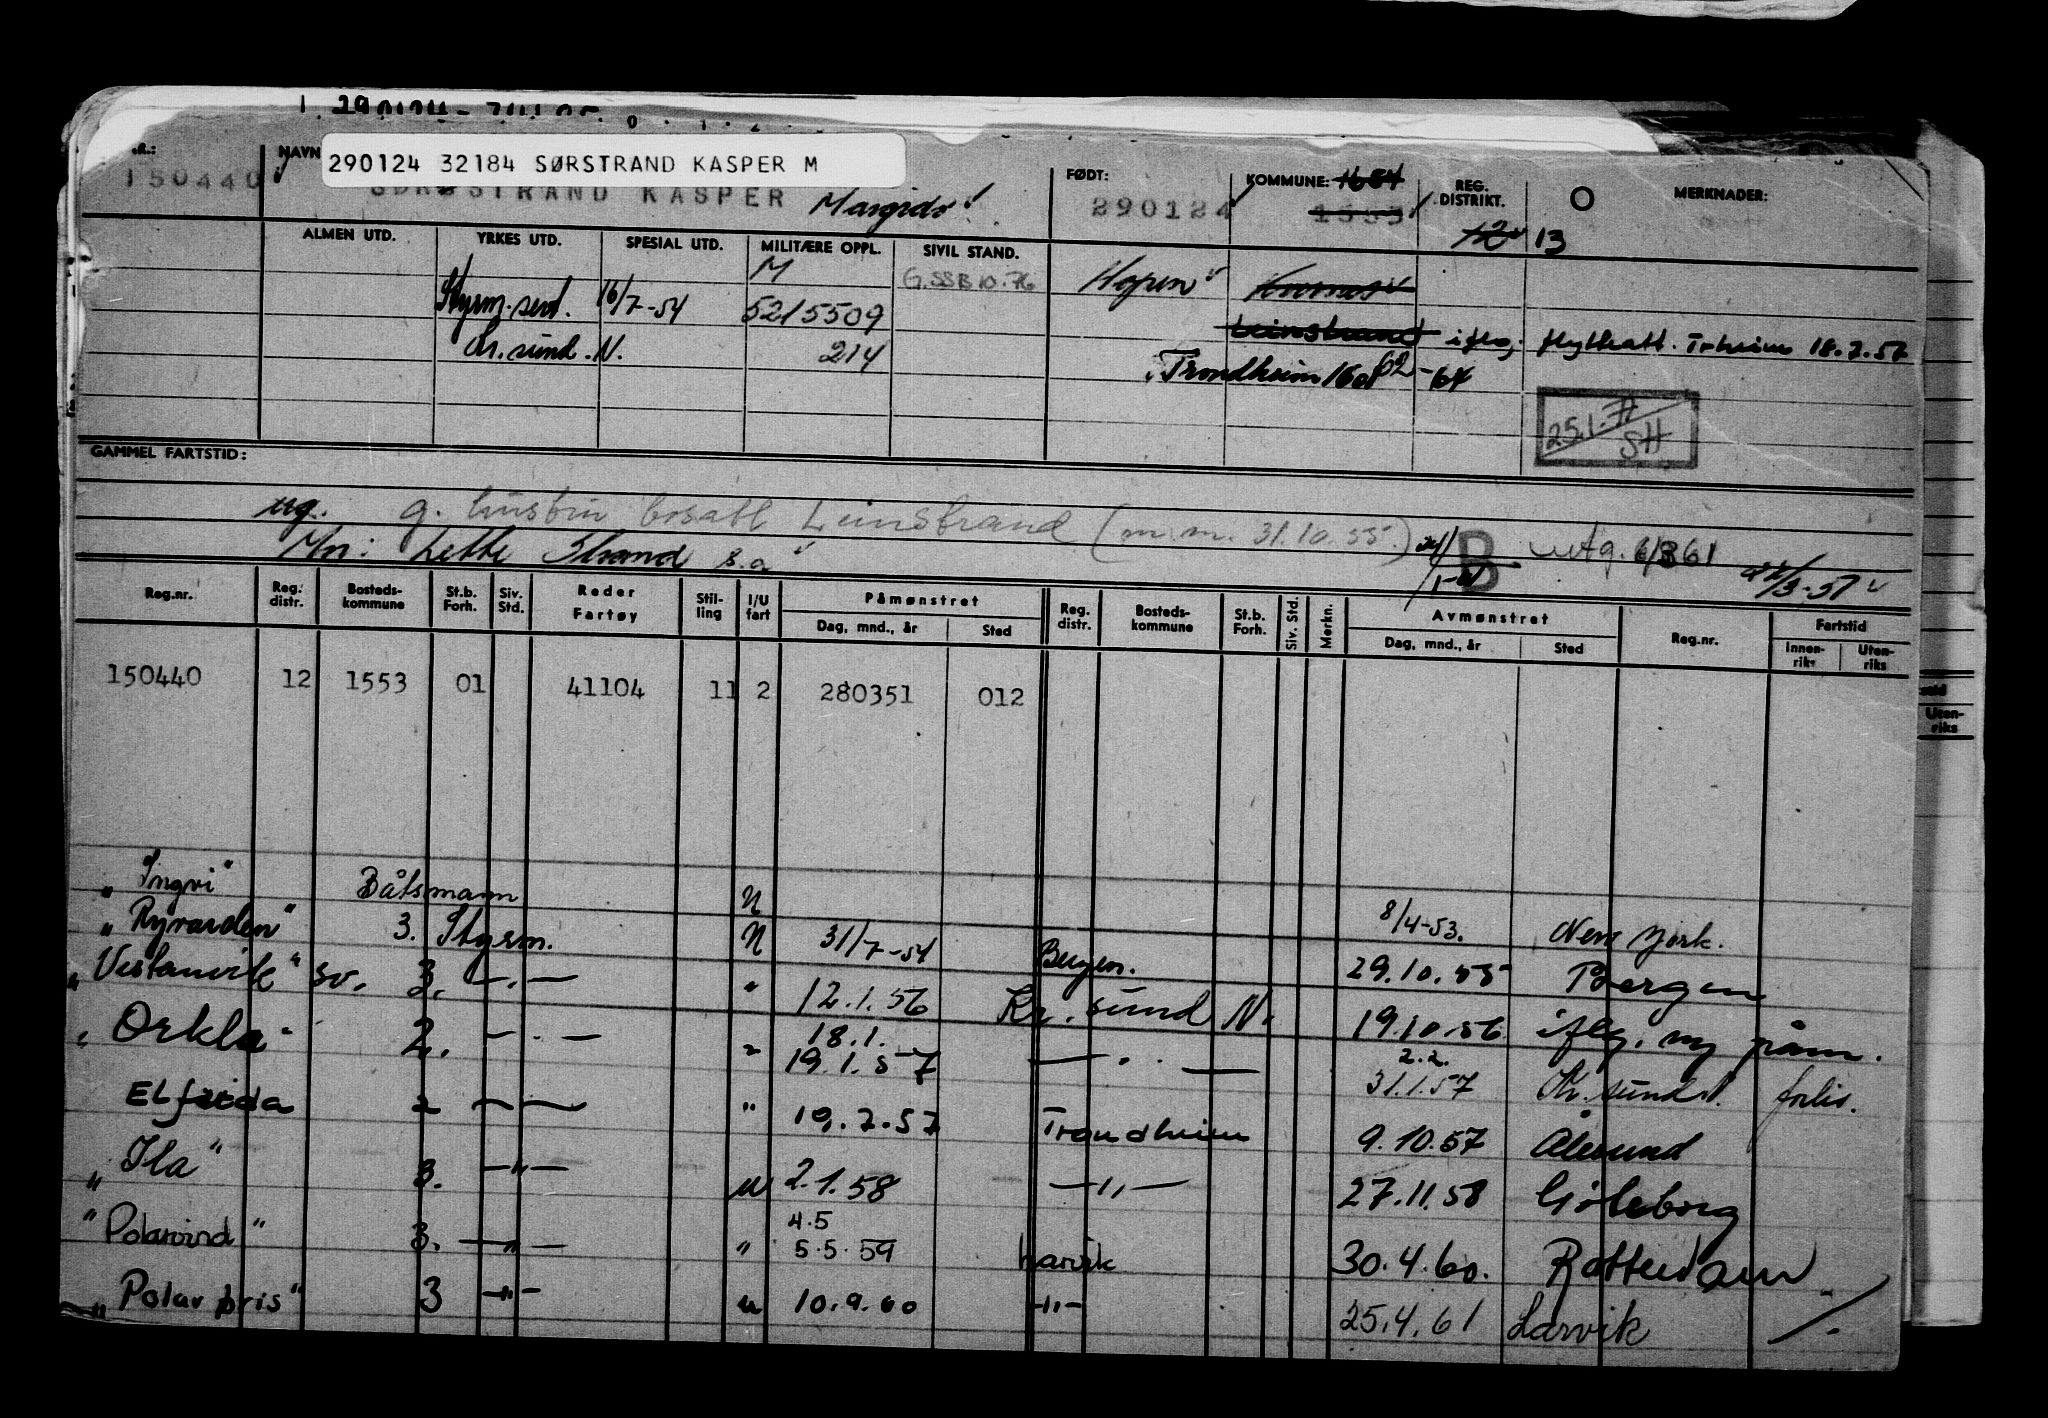 290124 32184 SØRSTRAND KASPER M
NAVN FØDT: KOMMUNE: 1654 REG. DISTRIKT. O MERKNADER:
150440 SØRSTRAND KASPER 290124 1553 12 13
ALMEN UTD. YRKES UTD. SPESIAL UTD. MILITÆRE OPPL. SIVIL STAND.
M G.SSB 10.76 Hopen
Styrm.sert. 16/7-54 5215509 Leinstrand iflg. flyttatt. Trheim 18.7.57
Kr.sund.N. 214 Trondheim 1601 62-64
25.1.71
SH
GAMMEL FARTSTID:
ug. g. hustru bosatt Leinstrand (m.m. 31.10.55.) B utg. 6/3 61
Mn: Lette Strand s.a.
Reg.nr. Reg. distr. Bosteds- kommune St.b. Forh. Siv. Std. Reder Fartøy Stil- ling I/U fart Påmønstret Dag, mnd., år Sted Reg. distr. Bosteds- kommune St.b. Forh. Siv. Std. Merkn. Avmønstret Dag, mnd., år Sted Reg.nr. Fartstid Innen- riks Uten- riks
150440 12 1553 01 41104 11 2 280351 012
"Ingvi" Båtsmann U 8/4-53. New York.
"Ryvarden" 3. Styrm. U 31/7-54 Bergen. 29.10.55 Bergen
"Vestanvik" sv. 3. —„— " 12.1.56 Kr.sund N. 19.10.56 iflg. ny påm.
"Orkla" 2. —„— " 18.1. 19.1.57 —„— 2.2. 31.1.57 Kr.sund N. forlis.
Elfrida 2 —„— " 19.7.57 Trondheim 9.10.57 Ålesund
"Ila" 3. —„— u 2.1.58 —„— 27.11.58 Göteborg
"Polarvind" 3. —„— " 4.5 5.5.59 Larvik 30.4.60. Rotterdam
"Polarpris" 3 —„— u 10.9.60 —„— 25.4.61 Larvik